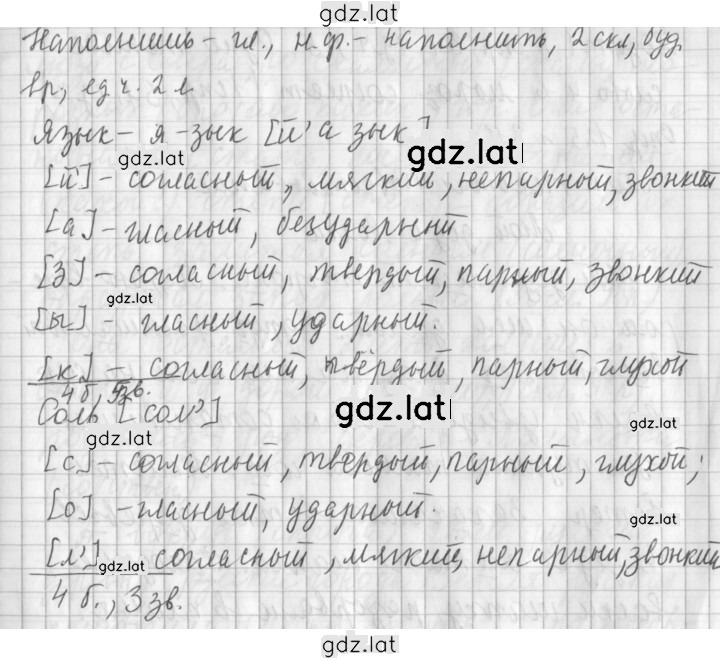 gdz.lat
Наполнишь - гл., н.ф.- наполнить, 2 скл, буд.
вр., ед.ч. 2 л.
Язык - я -зык [й'а зык]
gdz.lat
gdz.lat
[й'] - согласный, мягкий, непарный, звонкий
[а] - гласный, безударный
[з] - согласный, твердый, парный, звонкий
gdz.lat
[ы] - гласный, ударный.
[к] - согласный, твёрдый, парный, глухой
4 б., 5зв.
Соль [сол']
gdz.lat
gdz.lat
[с] - согласный, твёрдый, парный, глухой;
[о] - гласный, ударный.
gdz.lat
[л'] согласный, мягкий, непарный, звонкий
gdz.lat
4 б., 3 зв.
gdz.lat